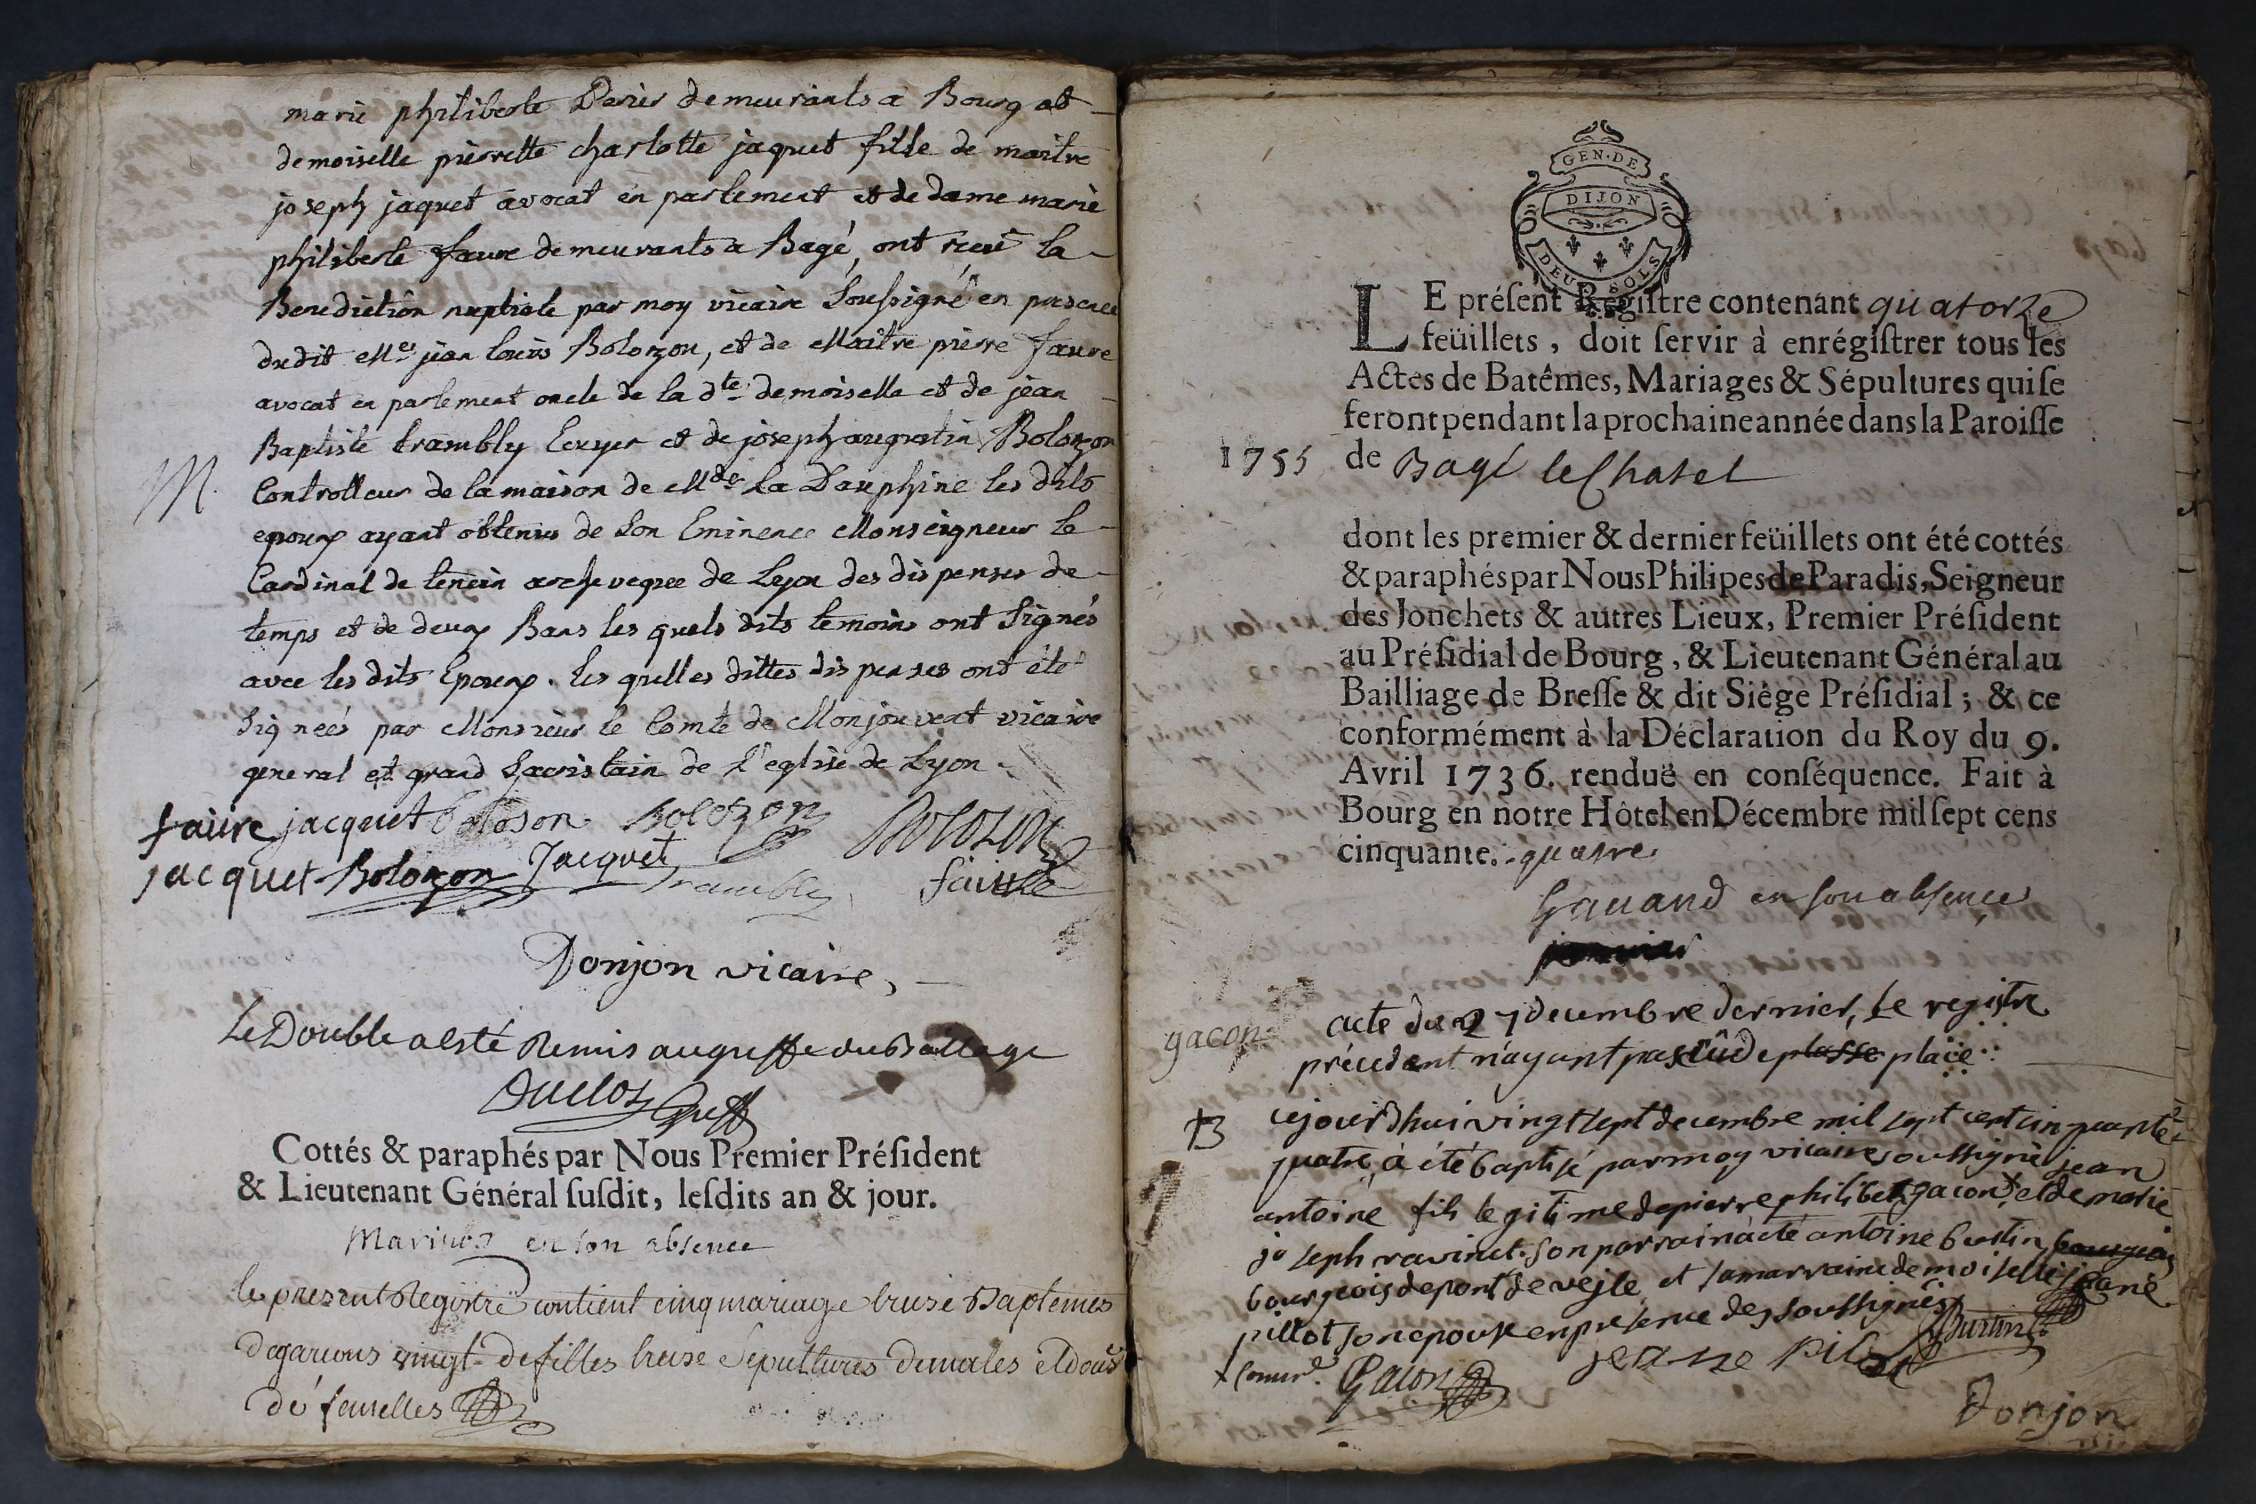 marie philiberte Perier demeurants a Bourg et
demoiselle pierrette charlotte jaquet fille de maitre
joseph jaquet avocat en parlement et de dame marie
philiberte faure demeurants a Bagé, ont receu la
Benediction nuptiale par moy vicaire soussigné en presence
dudit Mer. jean louis Bolozon, et de Maitre pierre faure
avocat en parlement oncle de la dte. demoiselle et de jean
Baptiste trambly Ecuyer et de joseph augustin Bolozon
M. Controlleur de la maison de Mde. La Dauphine les dits
epoux ayant obtenus de son Eminence Monseigneur le
Cardinal de tencin archeveque de Lyon des dispenses de
temps et de deux Bans les quels dits temoins ont signés
avec les dits Epoux. les quelles dittes dispenses ont été
signeés par Monsieur le Comte de Monjouvent vicaire
general et grand Sacristain de l'eglise de Lyon.
faure jacquet Boloson Bolozon Bolozon
jacquet Bolozon Jacquet Trambly faure
Donjon vicaire,
Le Double a esté Remis au greffe du Baillage
Duclos Greff
Cottés & paraphés par Nous Premier Préſident
& Lieutenant Général ſuſdit, leſdits an & jour.
en son absence
le present Registre contient cinq mariage treise Baptemes
de garcons vingt de filles treise Sepultures de males et douse
de femelles
GEN·DE
DIJON
DEUX SOLS
LE préſent Regiſtre contenant quatorze
feüillets, doit ſervir à enrégiſtrer tous les
Actes de Batêmes, Mariages & Sépultures qui ſe
feront pendant la prochaine année dans la Paroiſſe
1755 de Bagé le Chatel
dont les premier & dernier feüillets ont été cottés
& paraphés par Nous Philipes de Paradis, Seigneur
des Jonchets & autres Lieux, Premier Préſident
au Préſidial de Bourg, & Lieutenant Général au
Bailliage de Breſſe & dit Siége Préſidial; & ce
conformément à la Déclaration du Roy du 9.
Avril 1736. renduë en conſéquence. Fait à
Bourg en notre Hôtel en Décembre mil ſept cens
cinquante. quatre
Gauand en son absence
gacon acte du 27 decembre dernier, le registre
précedant n'ayant pas eû de plasse place
B cejourdhui vingt sept decembre mil sept cent cinquante
quatre, à été baptisé par moy vicaire soussigné jean
antoine fils legitime de pierre philibert gacon et de marie
joseph ravinet. son parrain à eté antoine burtin bourgeois
bourgeois de pont de veyle et sa marraine demoiselle jeane
pillot son epouse en presence des soussignés
Burtin
jeanne Pillot
Gacon
Donjon